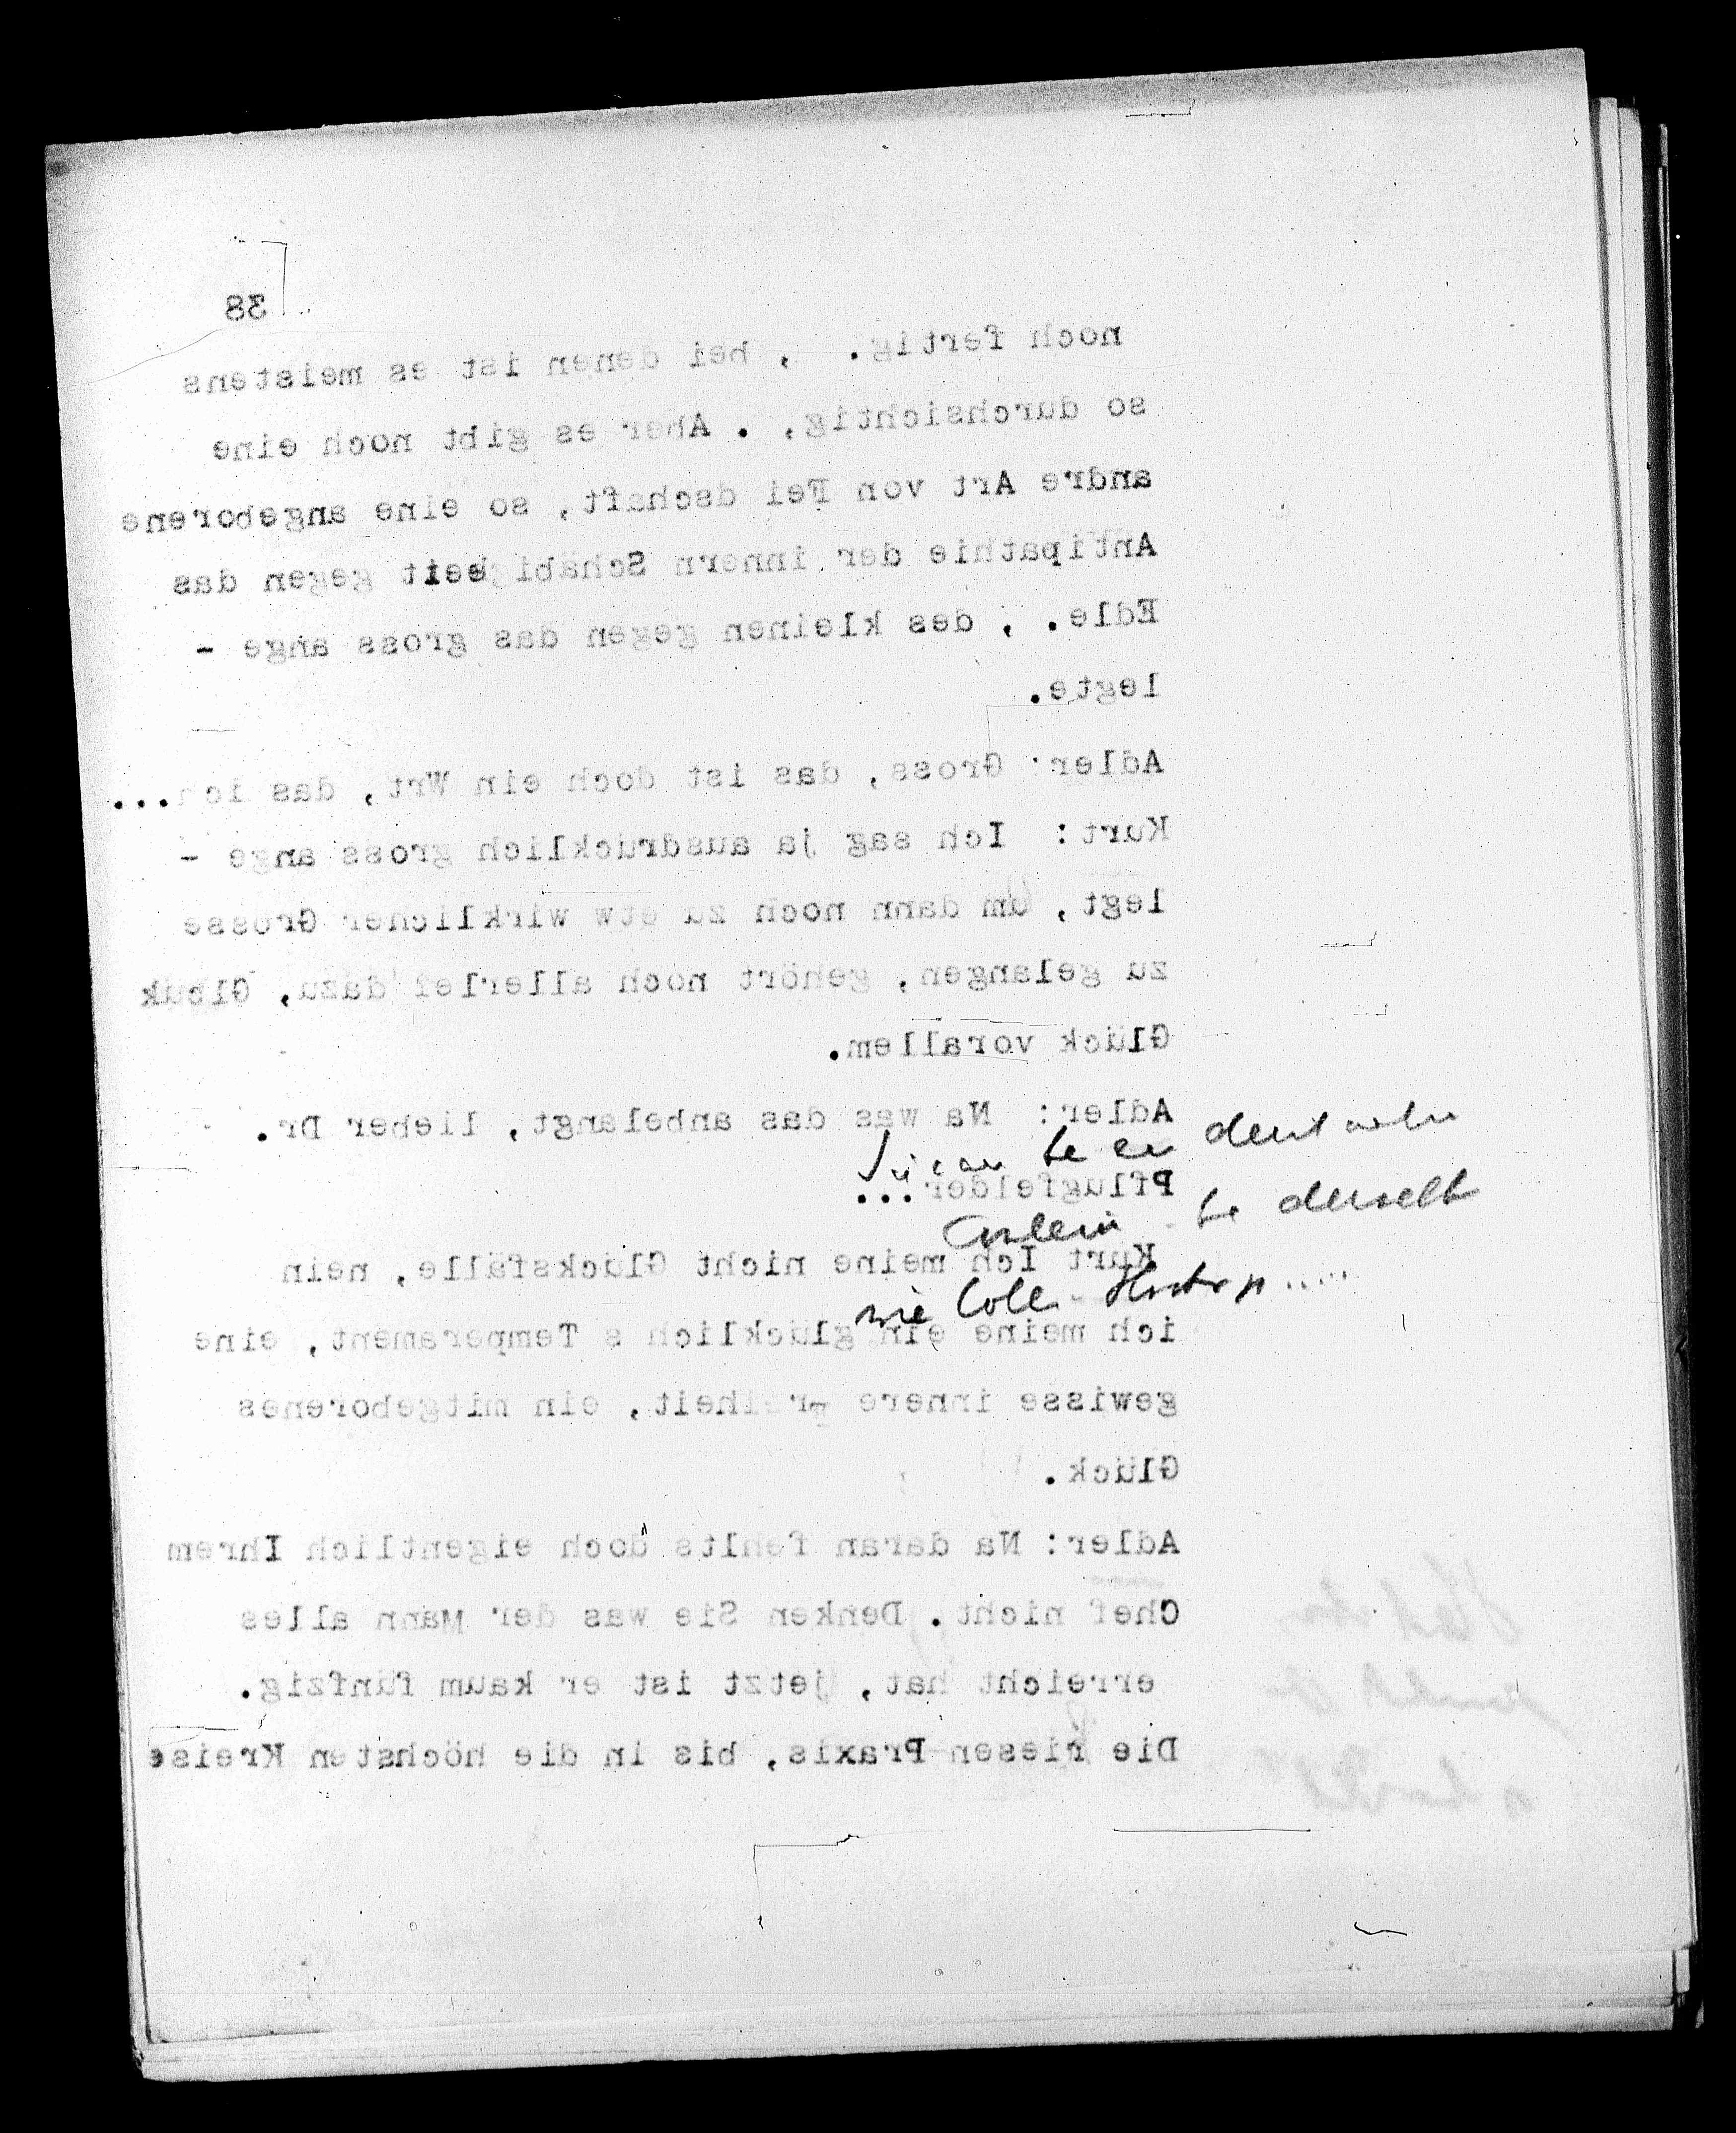 38
noch fertig. , bei denen ist es meistens
so durchsichtig, . Aber es gibt noch eine
andre Art von Fei dschaft, so eine angeborene
Antipathie der innern Schäbigkeit gegen das
Edle. , des kleinen gegen das gross ange -
legte.
Adler: Gross, das ist doch ein Wrt, das ich...
Kurt: Ich sag ja ausdrücklich gross ange -
legt, Um dann noch zu etw wirklicher Grösse
zu gelangen, gehört noch allerlei dazu, Glcuk
Glück vorallem.
Adler: Na was das anbelangt, lieber Dr.
Pflugfelder...
Kurt Ich meine nicht Glücksfälle, nein
wie
ich meine ein glücklich s Temperament, eine
gewisse innere Freiheit, ein mitgeborenes
Glück.
Adler: Na daran fehlts doch eigentlich Ihrem
Chef nicht. Denken Sie was der Mann alles
erreicht hat, jetzt ist er kaum fünfzig.
Die riesen Praxis, bis in die höchsten Kreise